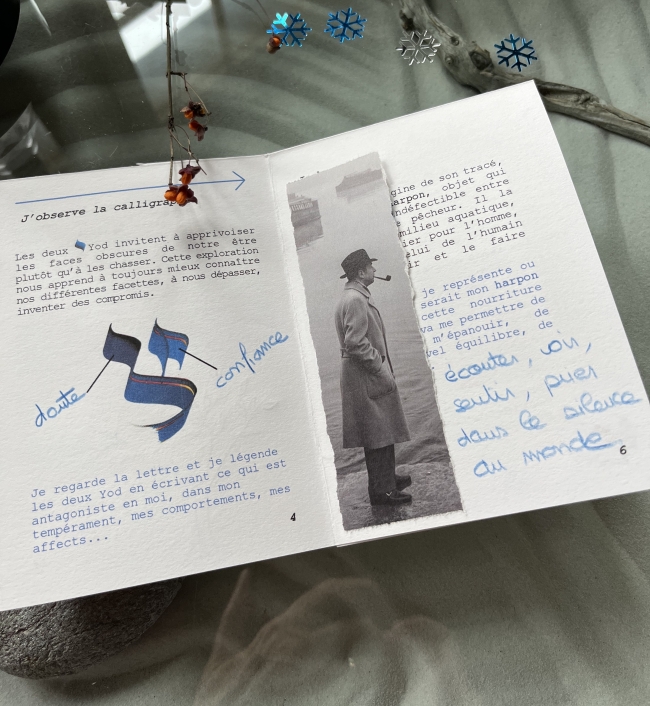 J'observe la calligrap
Les deux Yod invitent à apprivoiser
les faces obscures de notre être
plutôt qu'à les chasser. Cette exploration
nous apprend à toujours mieux connaître
nos différentes facettes, à nous dépasser,
inventer des compromis.
doute
confiance
Je regarde la lettre et je légende
les deux Yod en écrivant ce qui est
antagoniste en moi, dans mon
tempérament, mes comportements, mes
affects...
4
gine de son tracé,
arpon, objet qui
ndéfectible entre
e pêcheur. Il la
milieu aquatique,
ier pour l'homme,
elui de l'humain
ir et le faire
je représente ou
serait mon harpon
cette nourriture
va me permettre de
m'épanouir, de
vel équilibre, de
écouter, voir,
sentir, puer
dans le silence
au monde
6